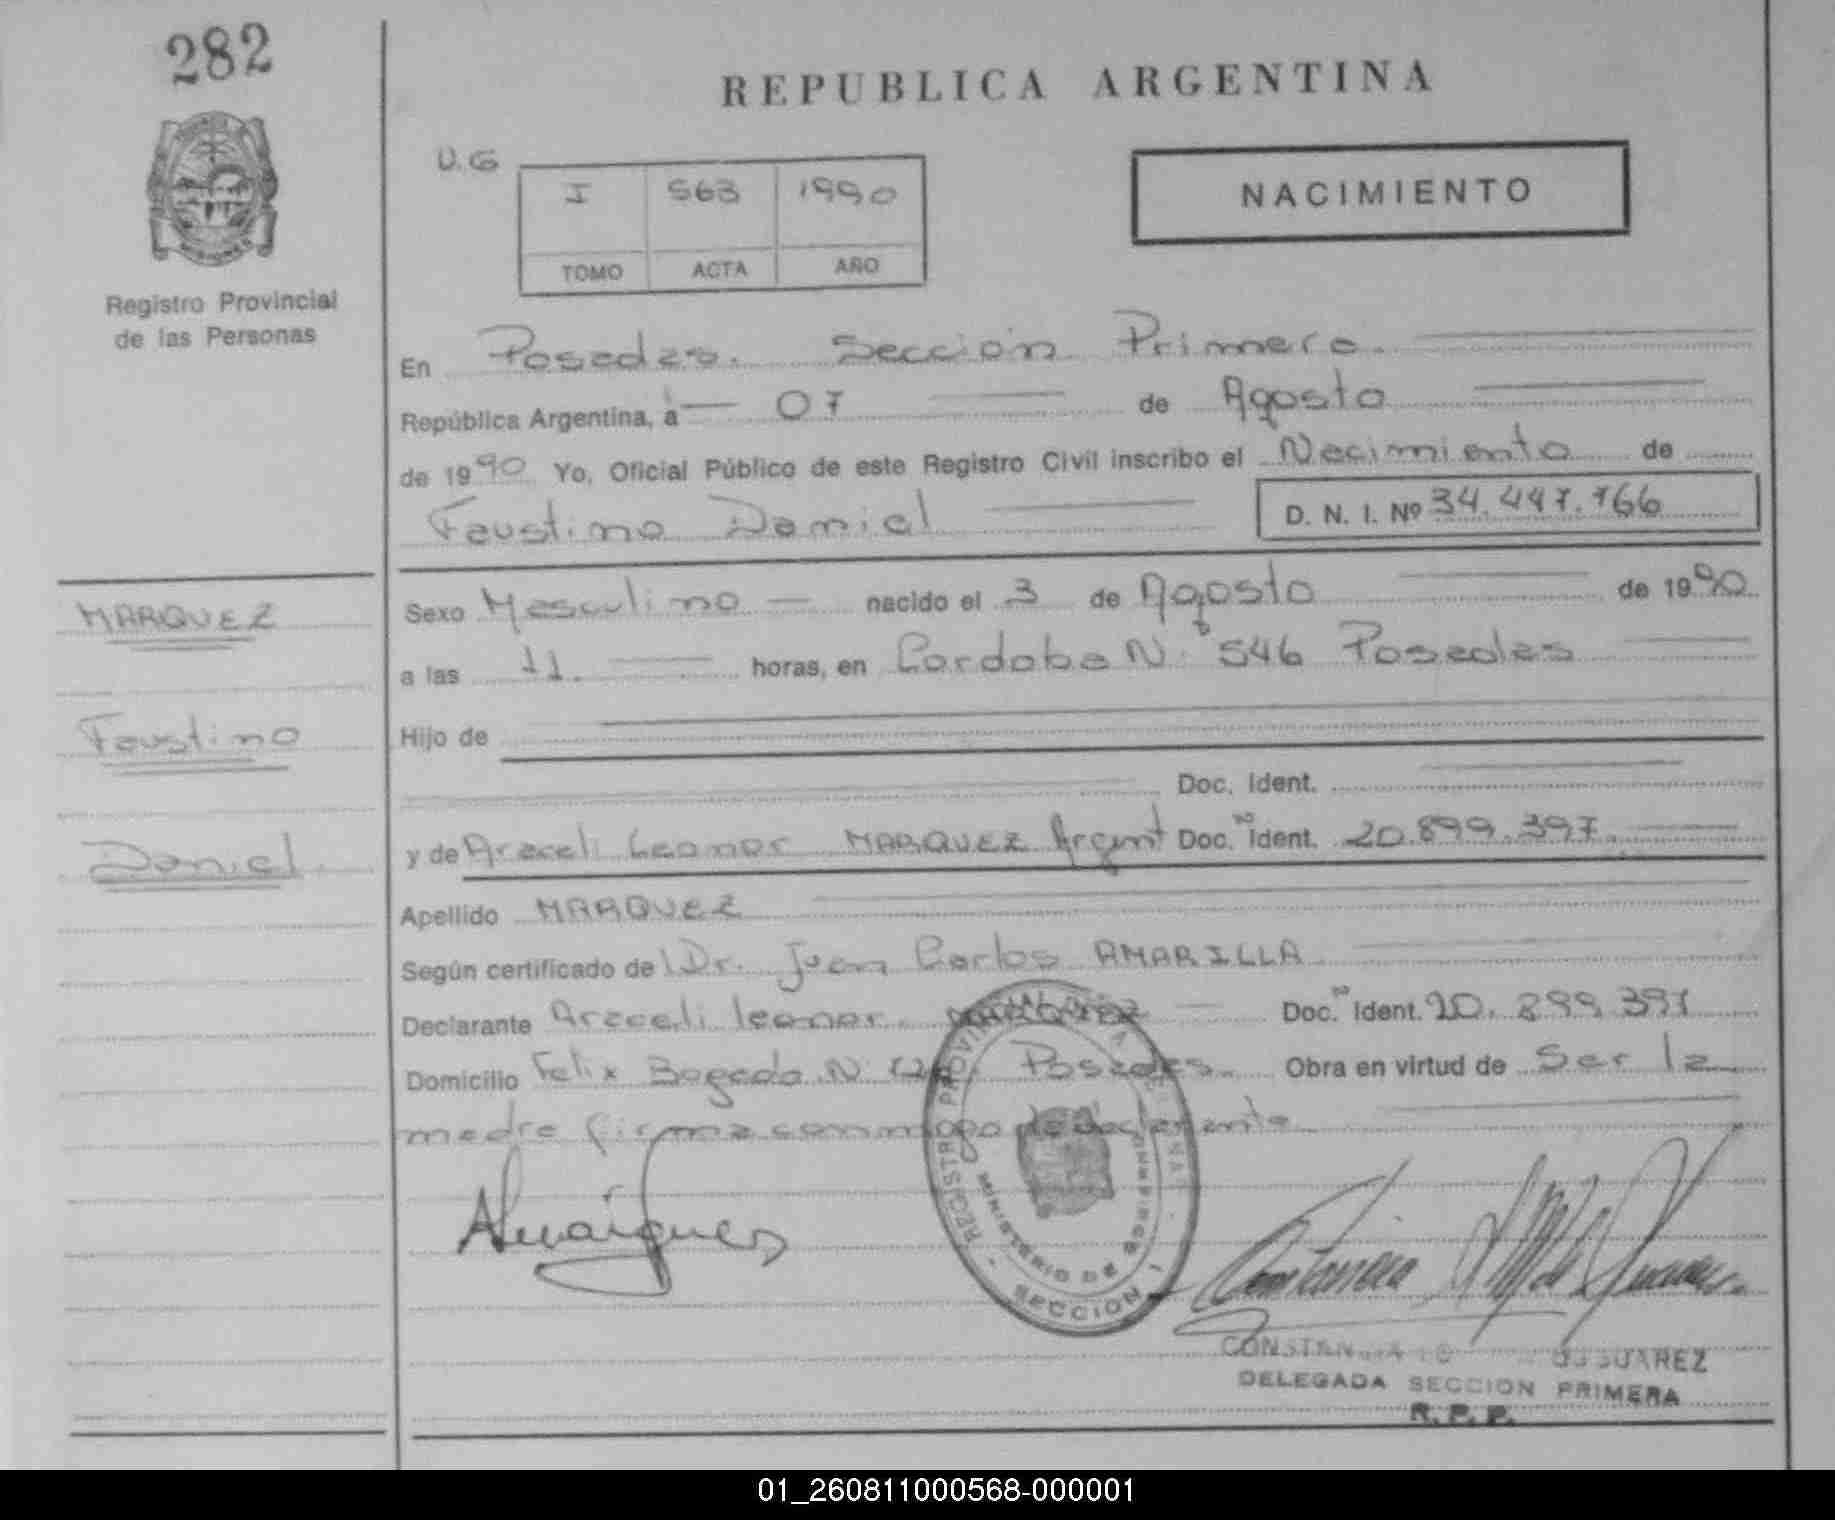 282
REPUBLICA ARGENTINA
U.G
I 563 1990
TOMO ACTA AÑO
NACIMIENTO
Registro Provincial
de las Personas
En Posadas. Sección Primera.
República Argentina, a 07 de Agosto
de 1990 Yo, Oficial Público de este Registro Civil inscribo el Nacimiento de
Faustino Daniel D. N. I. Nº 34.447.766
MARQUEZ
Faustino
Daniel.
Sexo Masculino nacido el 3 de Agosto de 1990
a las 11. horas, en Cordoba Nº 546 Posadas
Hijo de
Doc. Ident.
y de Araceli Leonor MARQUEZ Argent Doc. Nº Ident. 20.899.397.
Apellido MARQUEZ
Según certificado de Dr. Juan Carlos AMARILLA
Declarante Araceli Leonor MARQUEZ Doc. Nº Ident. 20.899.397
Domicilio Felix Bogado N Posadas. Obra en virtud de Ser la
madre firma conmigo declarante
REGISTRO PROVINCIAL DE LAS PERSONAS
MINISTERIO DE GOBIERNO
SECCION I
CONSTANCIA SUAREZ
DELEGADA SECCION PRIMERA
R. P. P.
01_260811000568-000001